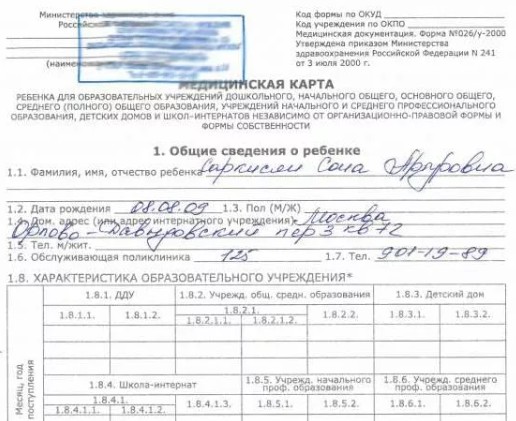 Министерство здравоохранения
Российской
(наименование
Код формы по ОКУД
Код учреждения по ОКПО
Медицинская документация. Форма №026/у-2000
Утверждена приказом Министерства
здравоохранения Российской Федерации N 241
от 3 июля 2000 г.
МЕДИЦИНСКАЯ КАРТА
РЕБЕНКА ДЛЯ ОБРАЗОВАТЕЛЬНЫХ УЧРЕЖДЕНИЙ ДОШКОЛЬНОГО, НАЧАЛЬНОГО ОБЩЕГО, ОСНОВНОГО ОБЩЕГО,
СРЕДНЕГО (ПОЛНОГО) ОБЩЕГО ОБРАЗОВАНИЯ, УЧРЕЖДЕНИЙ НАЧАЛЬНОГО И СРЕДНЕГО ПРОФЕССИОНАЛЬНОГО
ОБРАЗОВАНИЯ, ДЕТСКИХ ДОМОВ И ШКОЛ-ИНТЕРНАТОВ НЕЗАВИСИМО ОТ ОРГАНИЗАЦИОННО-ПРАВОВОЙ ФОРМЫ И
ФОРМЫ СОБСТВЕННОСТИ
1. Общие сведения о ребенке
1.1. Фамилия, имя, отчество ребенка Саркисян Сона Артуровна
1.2. Дата рождения 08.08.09 1.3. Пол (М/Ж)
1.4. Дом. адрес (или адрес интернатного учреждения) г. Москва
Орлово-Давыдовский пер 3 кв 72
1.5. Тел. м/жит.
1.6. Обслуживающая поликлиника 125 1.7. Тел. 901-19-89
1.8. ХАРАКТЕРИСТИКА ОБРАЗОВАТЕЛЬНОГО УЧРЕЖДЕНИЯ*
Месяц, год поступления
1.8.1. ДДУ 1.8.2. Учрежд. общ. средн. образования 1.8.3. Детский дом
1.8.1.1. 1.8.1.2. 1.8.2.1. 1.8.2.2. 1.8.3.1. 1.8.3.2.
1.8.2.1.1. 1.8.2.1.2.
1.8.4. Школа-интернат 1.8.5. Учрежд. начального проф. образования 1.8.6. Учрежд. среднего проф. образования
1.8.4.1. 1.8.4.1.3. 1.8.5.1. 1.8.5.2. 1.8.6.1. 1.8.6.2.
1.8.4.1.1. 1.8.4.1.2.